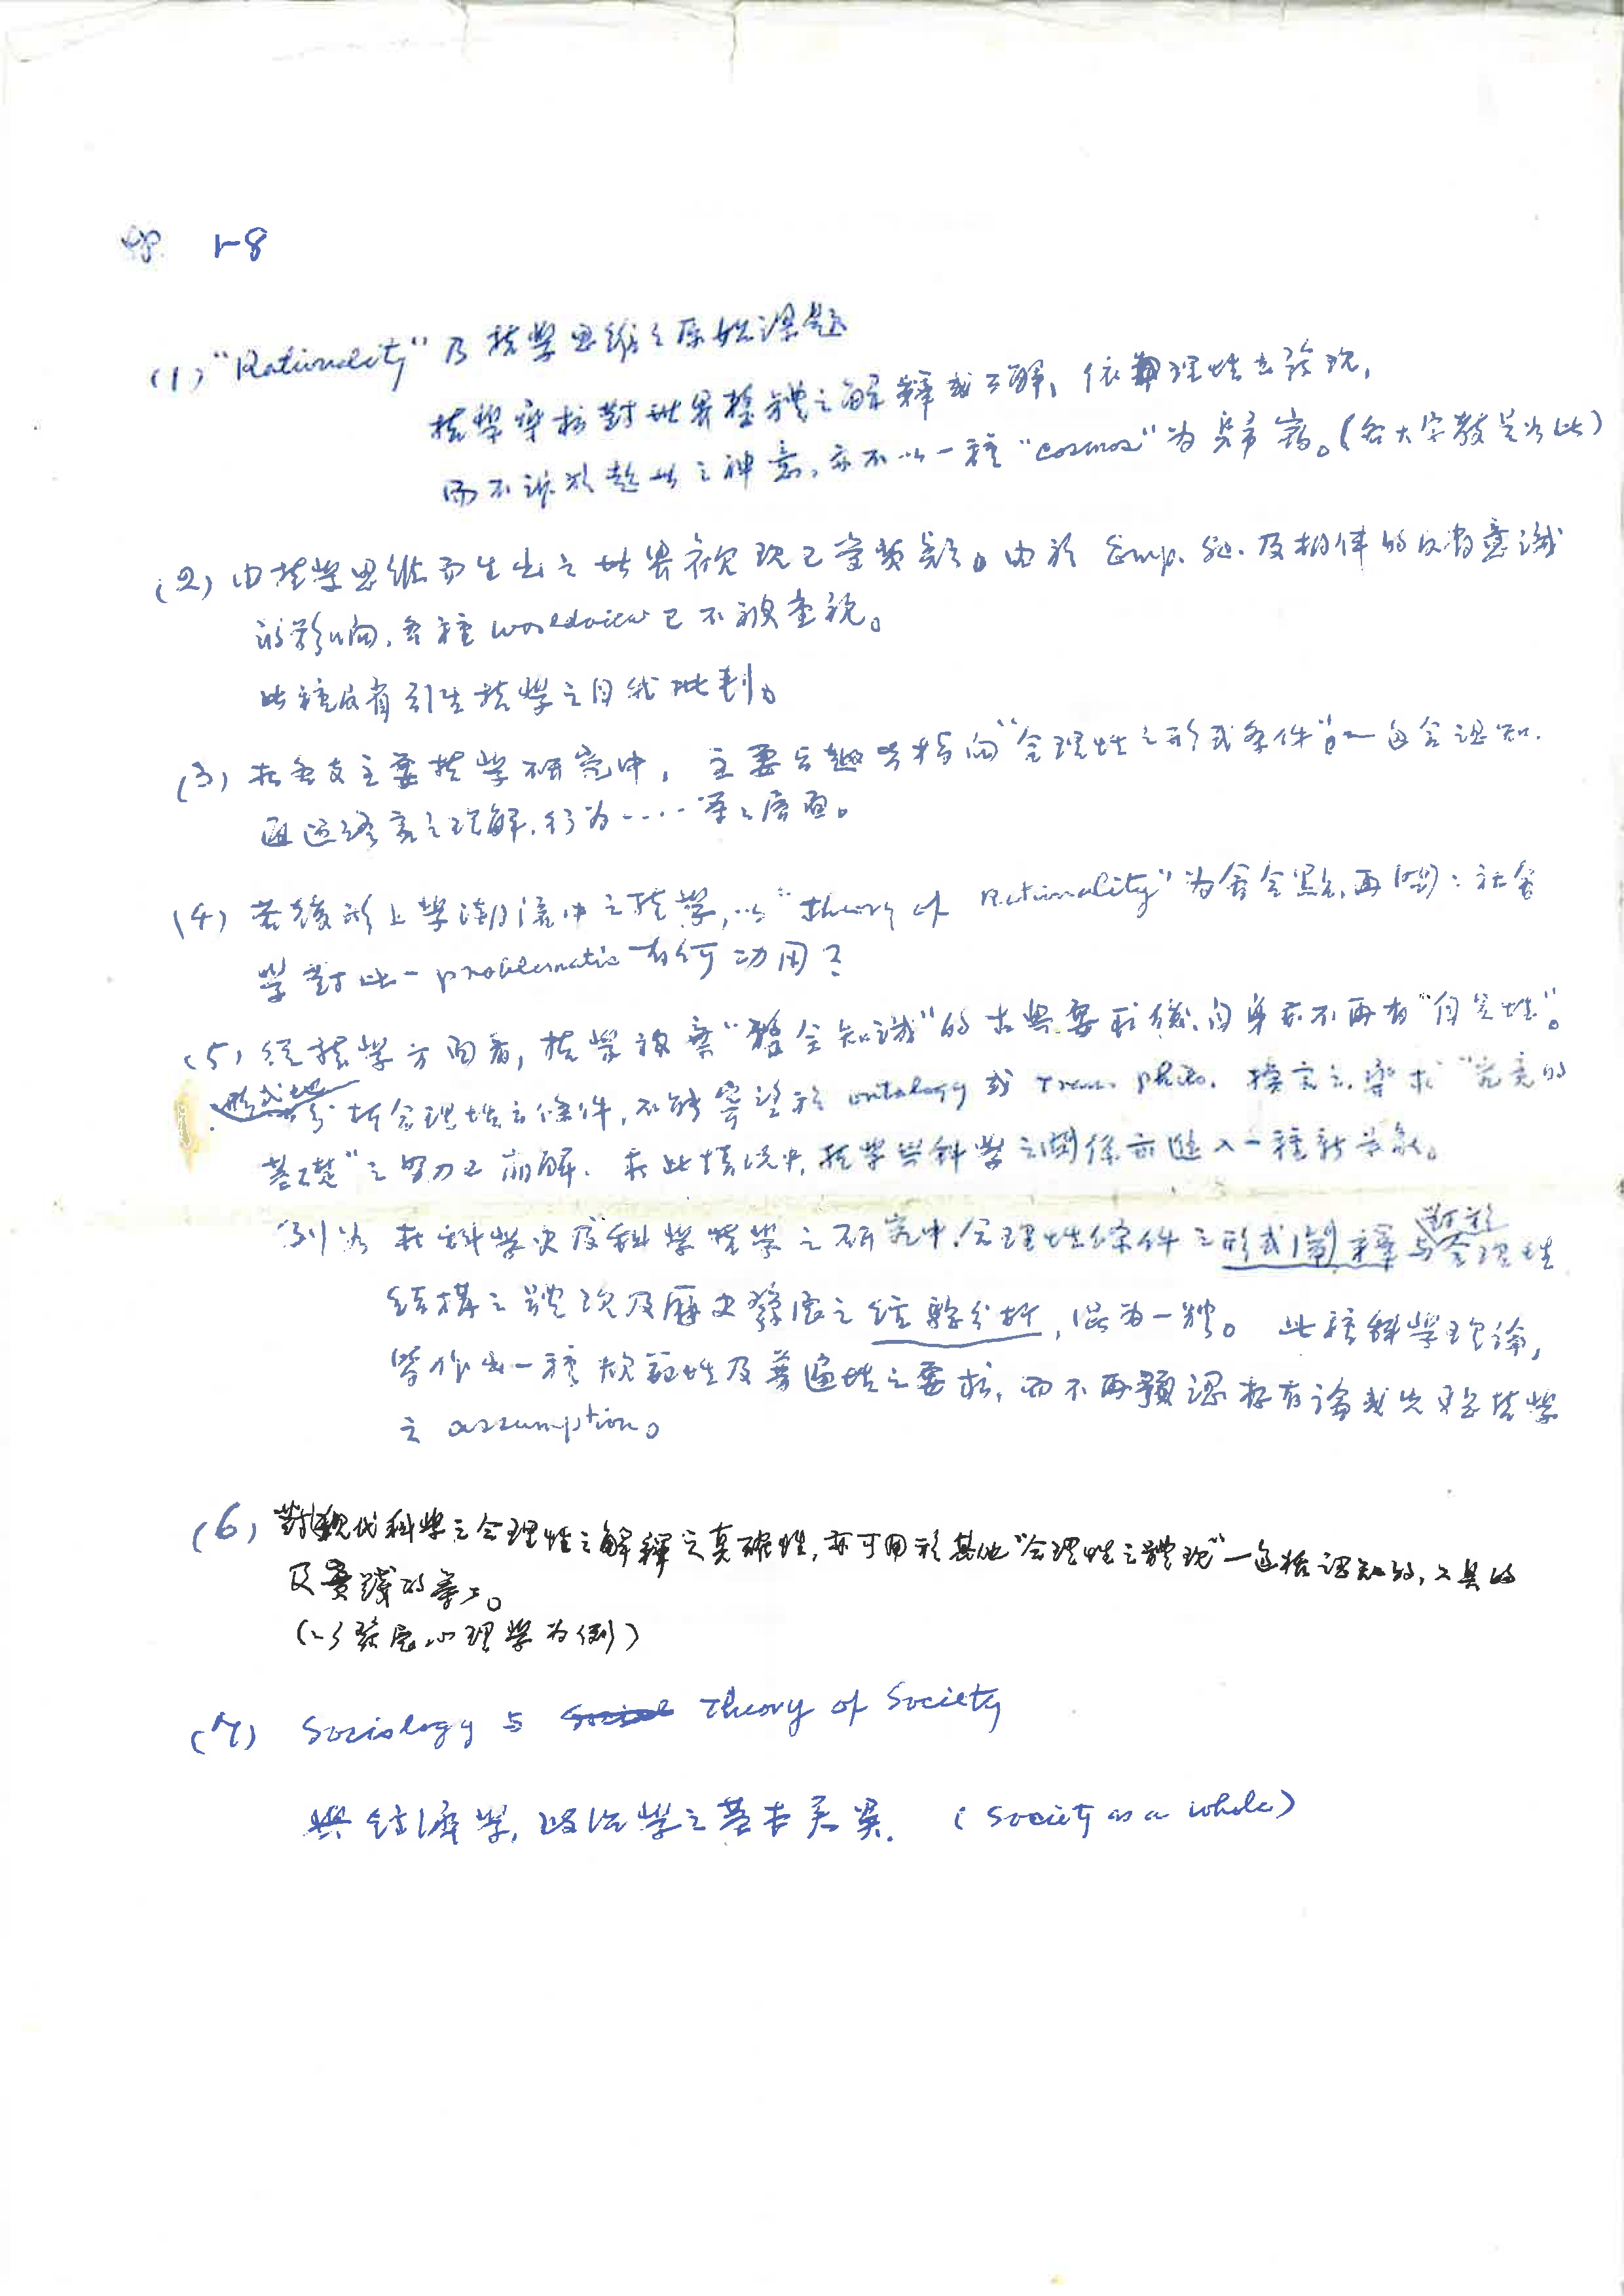 pp. 1-8
(1) "Rationality" 乃哲學思維之原始課題
哲學尋求對世界整體之解釋或了解, 依理性去發現,
而不訴於超世之神意, 亦不以一種 "cosmos" 為歸宿。(各大宗教是如此)
(2) 由哲學思維而生出之世界觀現已當質疑。由於 Emp. Sci. 及相伴的反省意識
的影响, 各種 worldview 已不被重視。
此種反省引生哲學之自我批判。
(3) 在各支主要哲學研究中, 主要興趣皆指向"合理性之形式条件" — 包含認知.
語言之理解, 行为 .... 等之層面。
(4) 若後形上學潮流中之哲學, 以 "theory of Rationality" 为會合點, 再問: 社會
學對此一 problematic 有何功用?
(5) 從哲學方面看, 哲學放棄 "整全知識" 的古典要求後, 自身亦不再有 "自足性"。
形式地分析合理性之條件, 不能寄望於 ontology 或 Tran. philo. 換言之, 尋求 "究竟的
基礎" 之努力已崩解. 在此情況中, 哲學與科學之關係亦進入一種新
例如 在科學史及科學哲學之研究中, 合理性條件之形式闡釋與對於合理性
結構之體現及歷史發展之經驗分析, 混为一體。 此種科學理論,
皆作出一種規範性及普遍性之要求, 而不再預認存有論或先驗哲學
之 assumption。
(6) 對現代科學之合理性之解釋之真確性, 亦可用於其他 "合理性之體現" — 包括認知的, 工具的
及實踐的等等。
(以發展心理學为例)
(7) Sociology 与 Theory of Society
與經濟學, 政治學之基本差異. (Society as a whole)